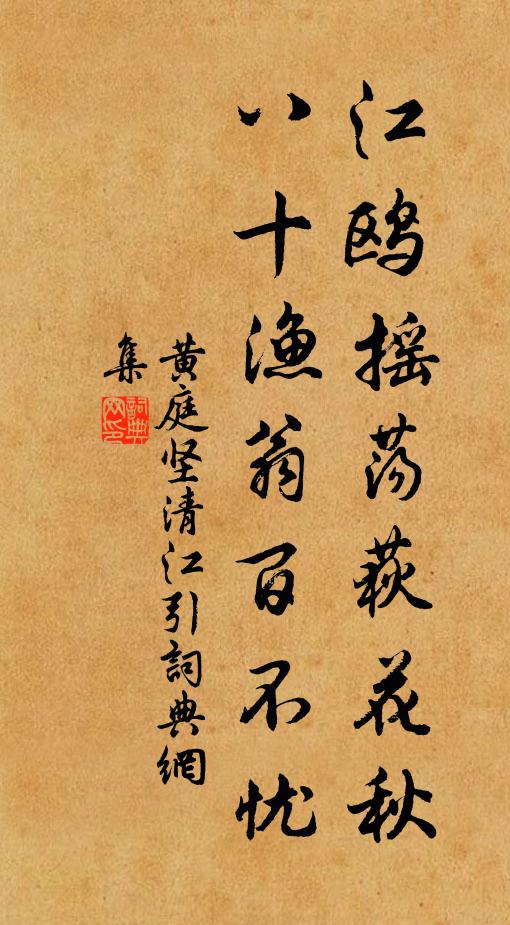 江鸥摇荡荻花秋
八十渔翁百不忧
黄庭坚清江引詞典網
集
詞典網印